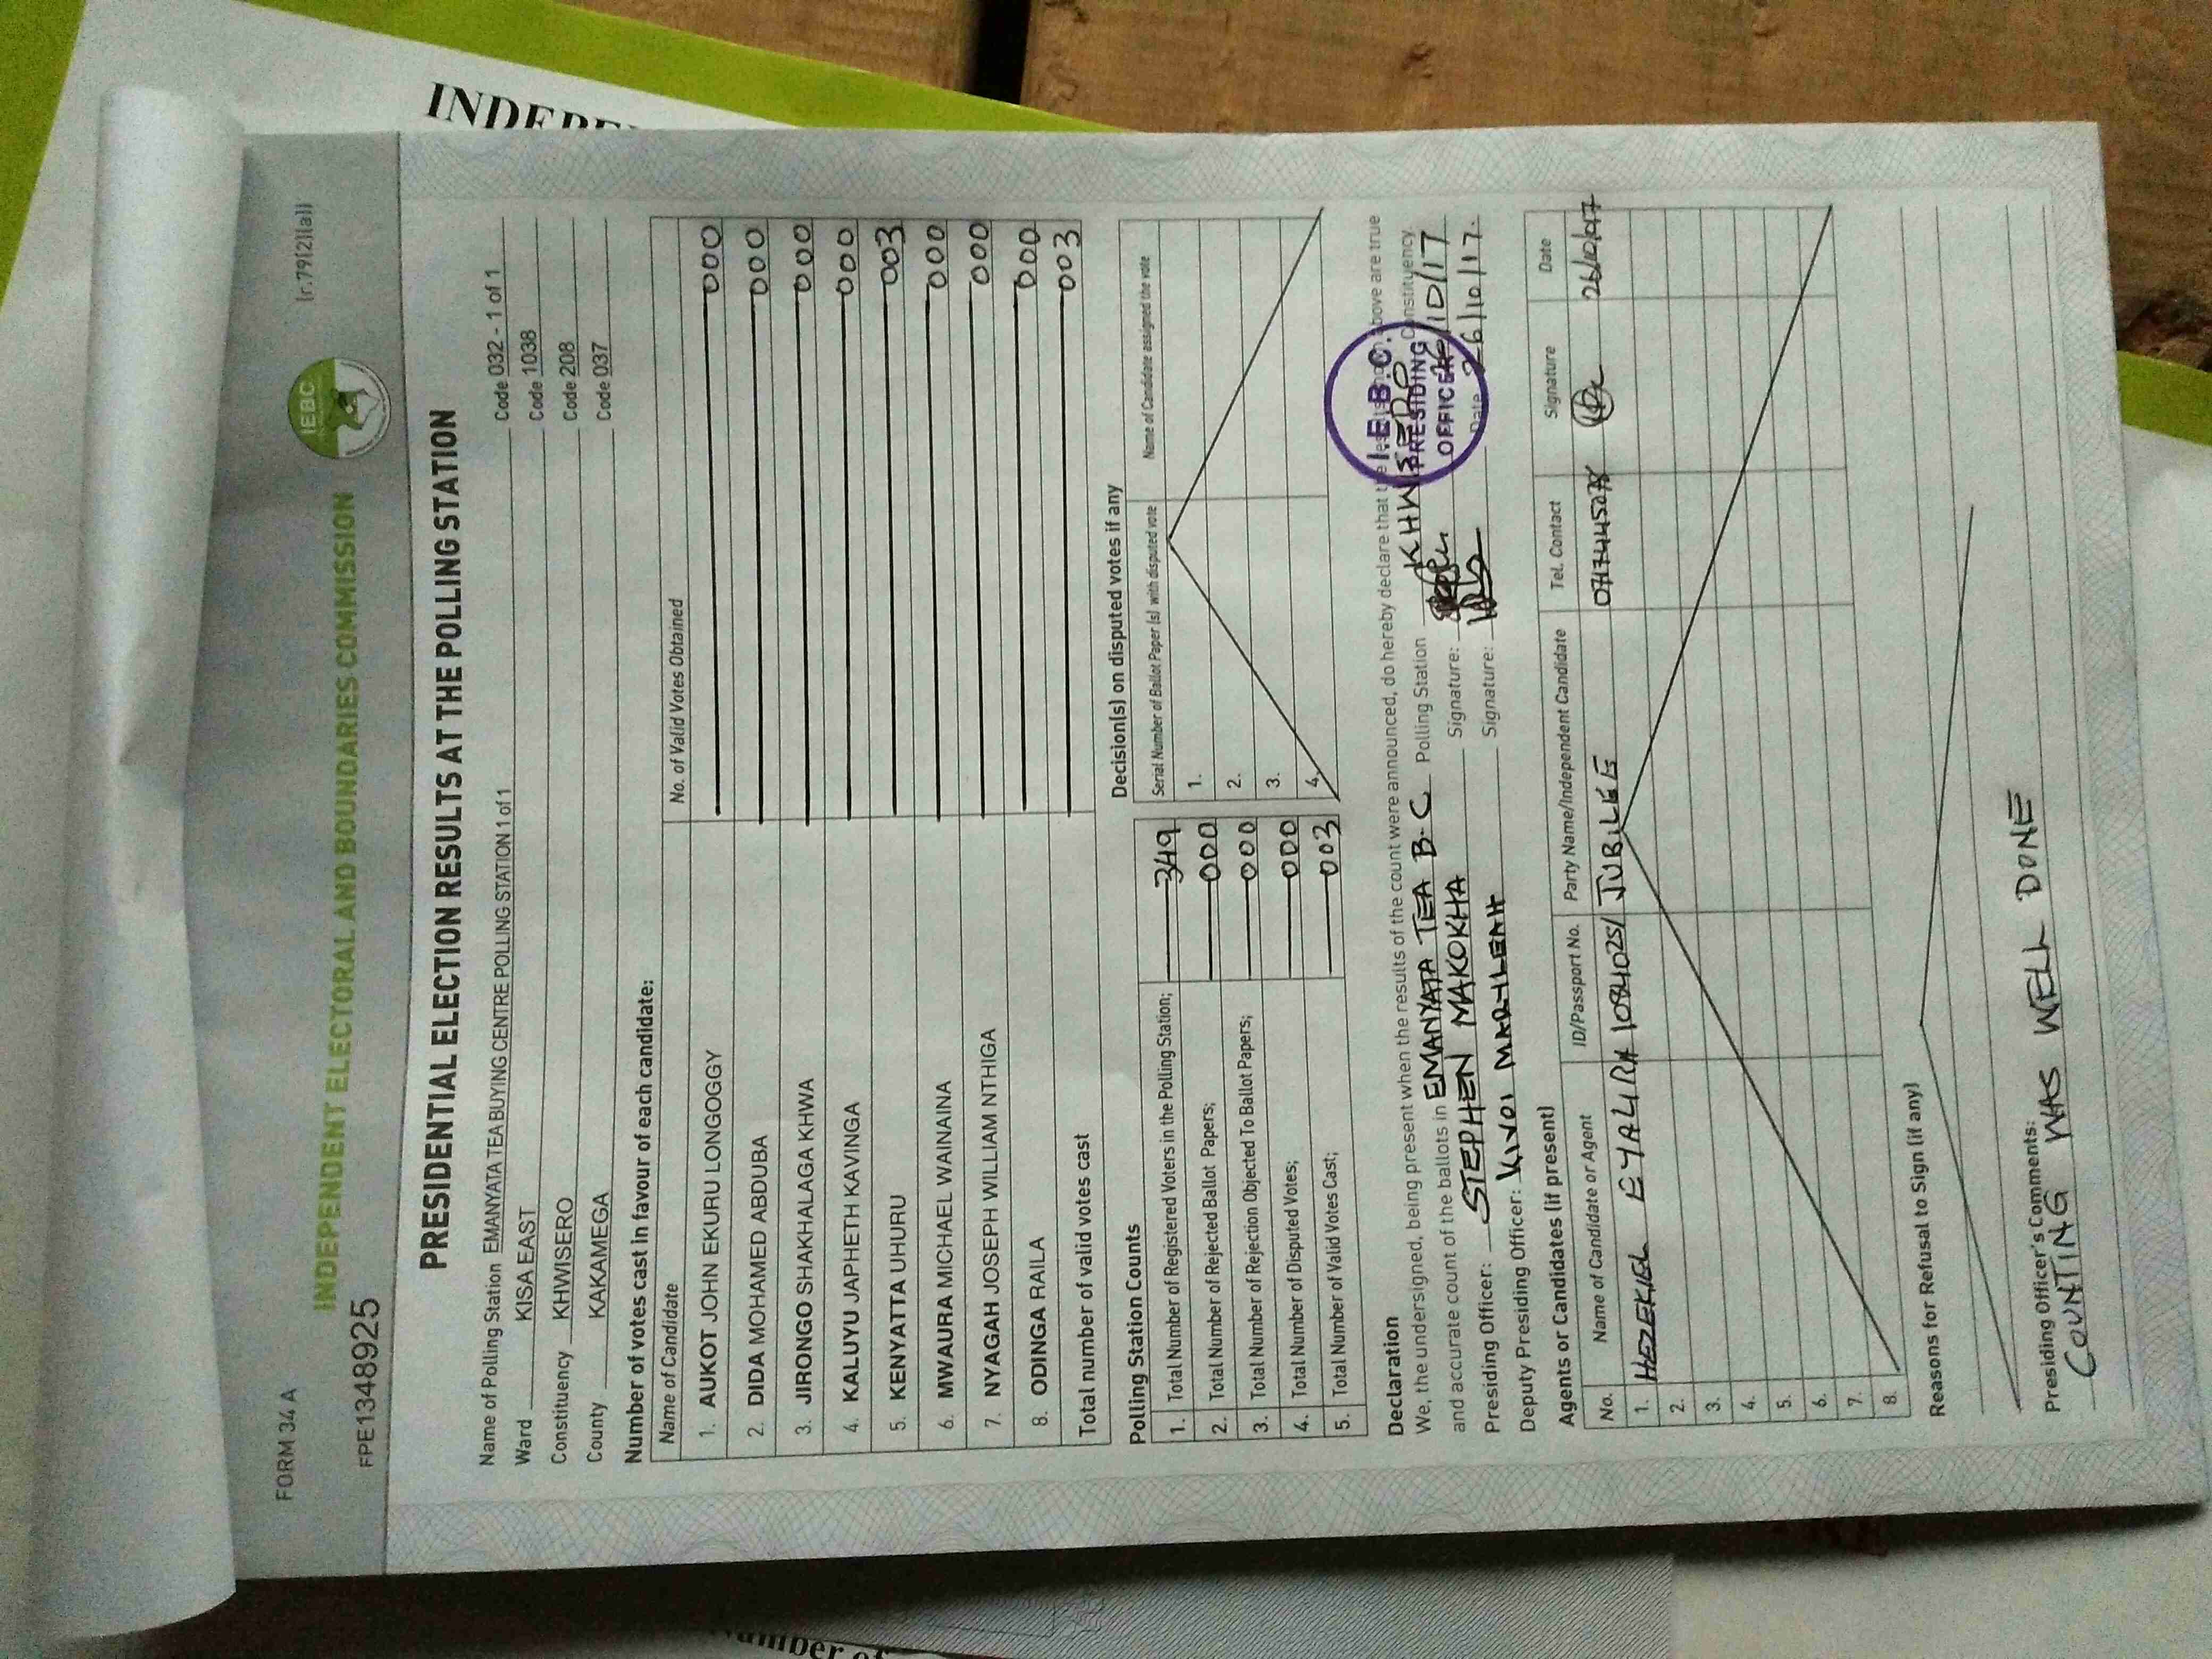 INDEPE
FORM 34 A
(r.79(2)(a))
INDEPENDENT ELECTORAL AND BOUNDARIES COMMISSION
IEBC
FPE1348925
PRESIDENTIAL ELECTION RESULTS AT THE POLLING STATION
Name of Polling Station EMANYATA TEA BUYING CENTRE POLLING STATION 1 of 1 Code 032 - 1 of 1
Ward KISA EAST Code 1038
Constituency KHWISERO Code 208
County KAKAMEGA Code 037
Number of votes cast in favour of each candidate:
Name of Candidate No. of Valid Votes Obtained
1. AUKOT JOHN EKURU LONGOGGY 000
2. DIDA MOHAMED ABDUBA 000
3. JIRONGO SHAKHALAGA KHWA 000
4. KALUYU JAPHETH KAVINGA 000
5. KENYATTA UHURU 003
6. MWAURA MICHAEL WAINAINA 000
7. NYAGAH JOSEPH WILLIAM NTHIGA 000
8. ODINGA RAILA 000
Total number of valid votes cast 003
Polling Station Counts
1. Total Number of Registered Voters in the Polling Station; 349
2. Total Number of Rejected Ballot Papers; 000
3. Total Number of Rejection Objected To Ballot Papers; 000
4. Total Number of Disputed Votes; 000
5. Total Number of Valid Votes Cast; 003
Decision(s) on disputed votes if any
Serial Number of Ballot Paper (s) with disputed vote Name of Candidate assigned the vote
1.
2.
3.
4.
Declaration
We, the undersigned, being present when the results of the count were announced, do hereby declare that the results shown above are true
and accurate count of the ballots in EMANYATA TEA B.C Polling Station KHWISERO Constituency.
Presiding Officer: STEPHEN MAKOKHA Signature: 26/10/17
Deputy Presiding Officer: KIVOI MARY LEAH Signature: Date 26/10/17.
I.E.B.C.
PRESIDING
OFFICER
Agents or Candidates (if present)
No. Name of Candidate or Agent ID/Passport No. Party Name/Independent Candidate Tel. Contact Signature Date
1. HEZEKIEL JUBILEE 26/10/017
2.
3.
4.
5.
6.
7.
8.
Reasons for Refusal to Sign (if any)
Presiding Officer's Comments:
COUNTING WAS WELL DONE
Number of